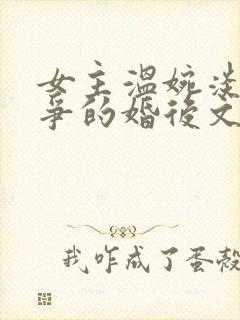 女主溫婉淡
爭的婚後文
我咋成了蛋殼